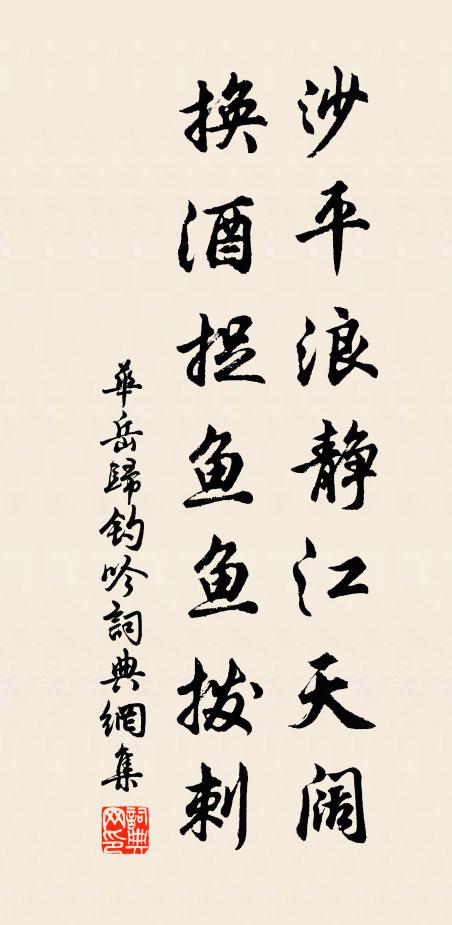 沙平浪静江天阔
换酒捉鱼鱼拨刺
華岳歸釣吟詞典網集
詞典網印